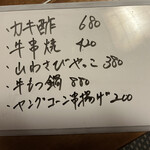 ・カキ酢 680
・牛串焼 420
・山わさびやっこ 380
・牛もつ鍋 880
・ヤングコーン串揚げ 200